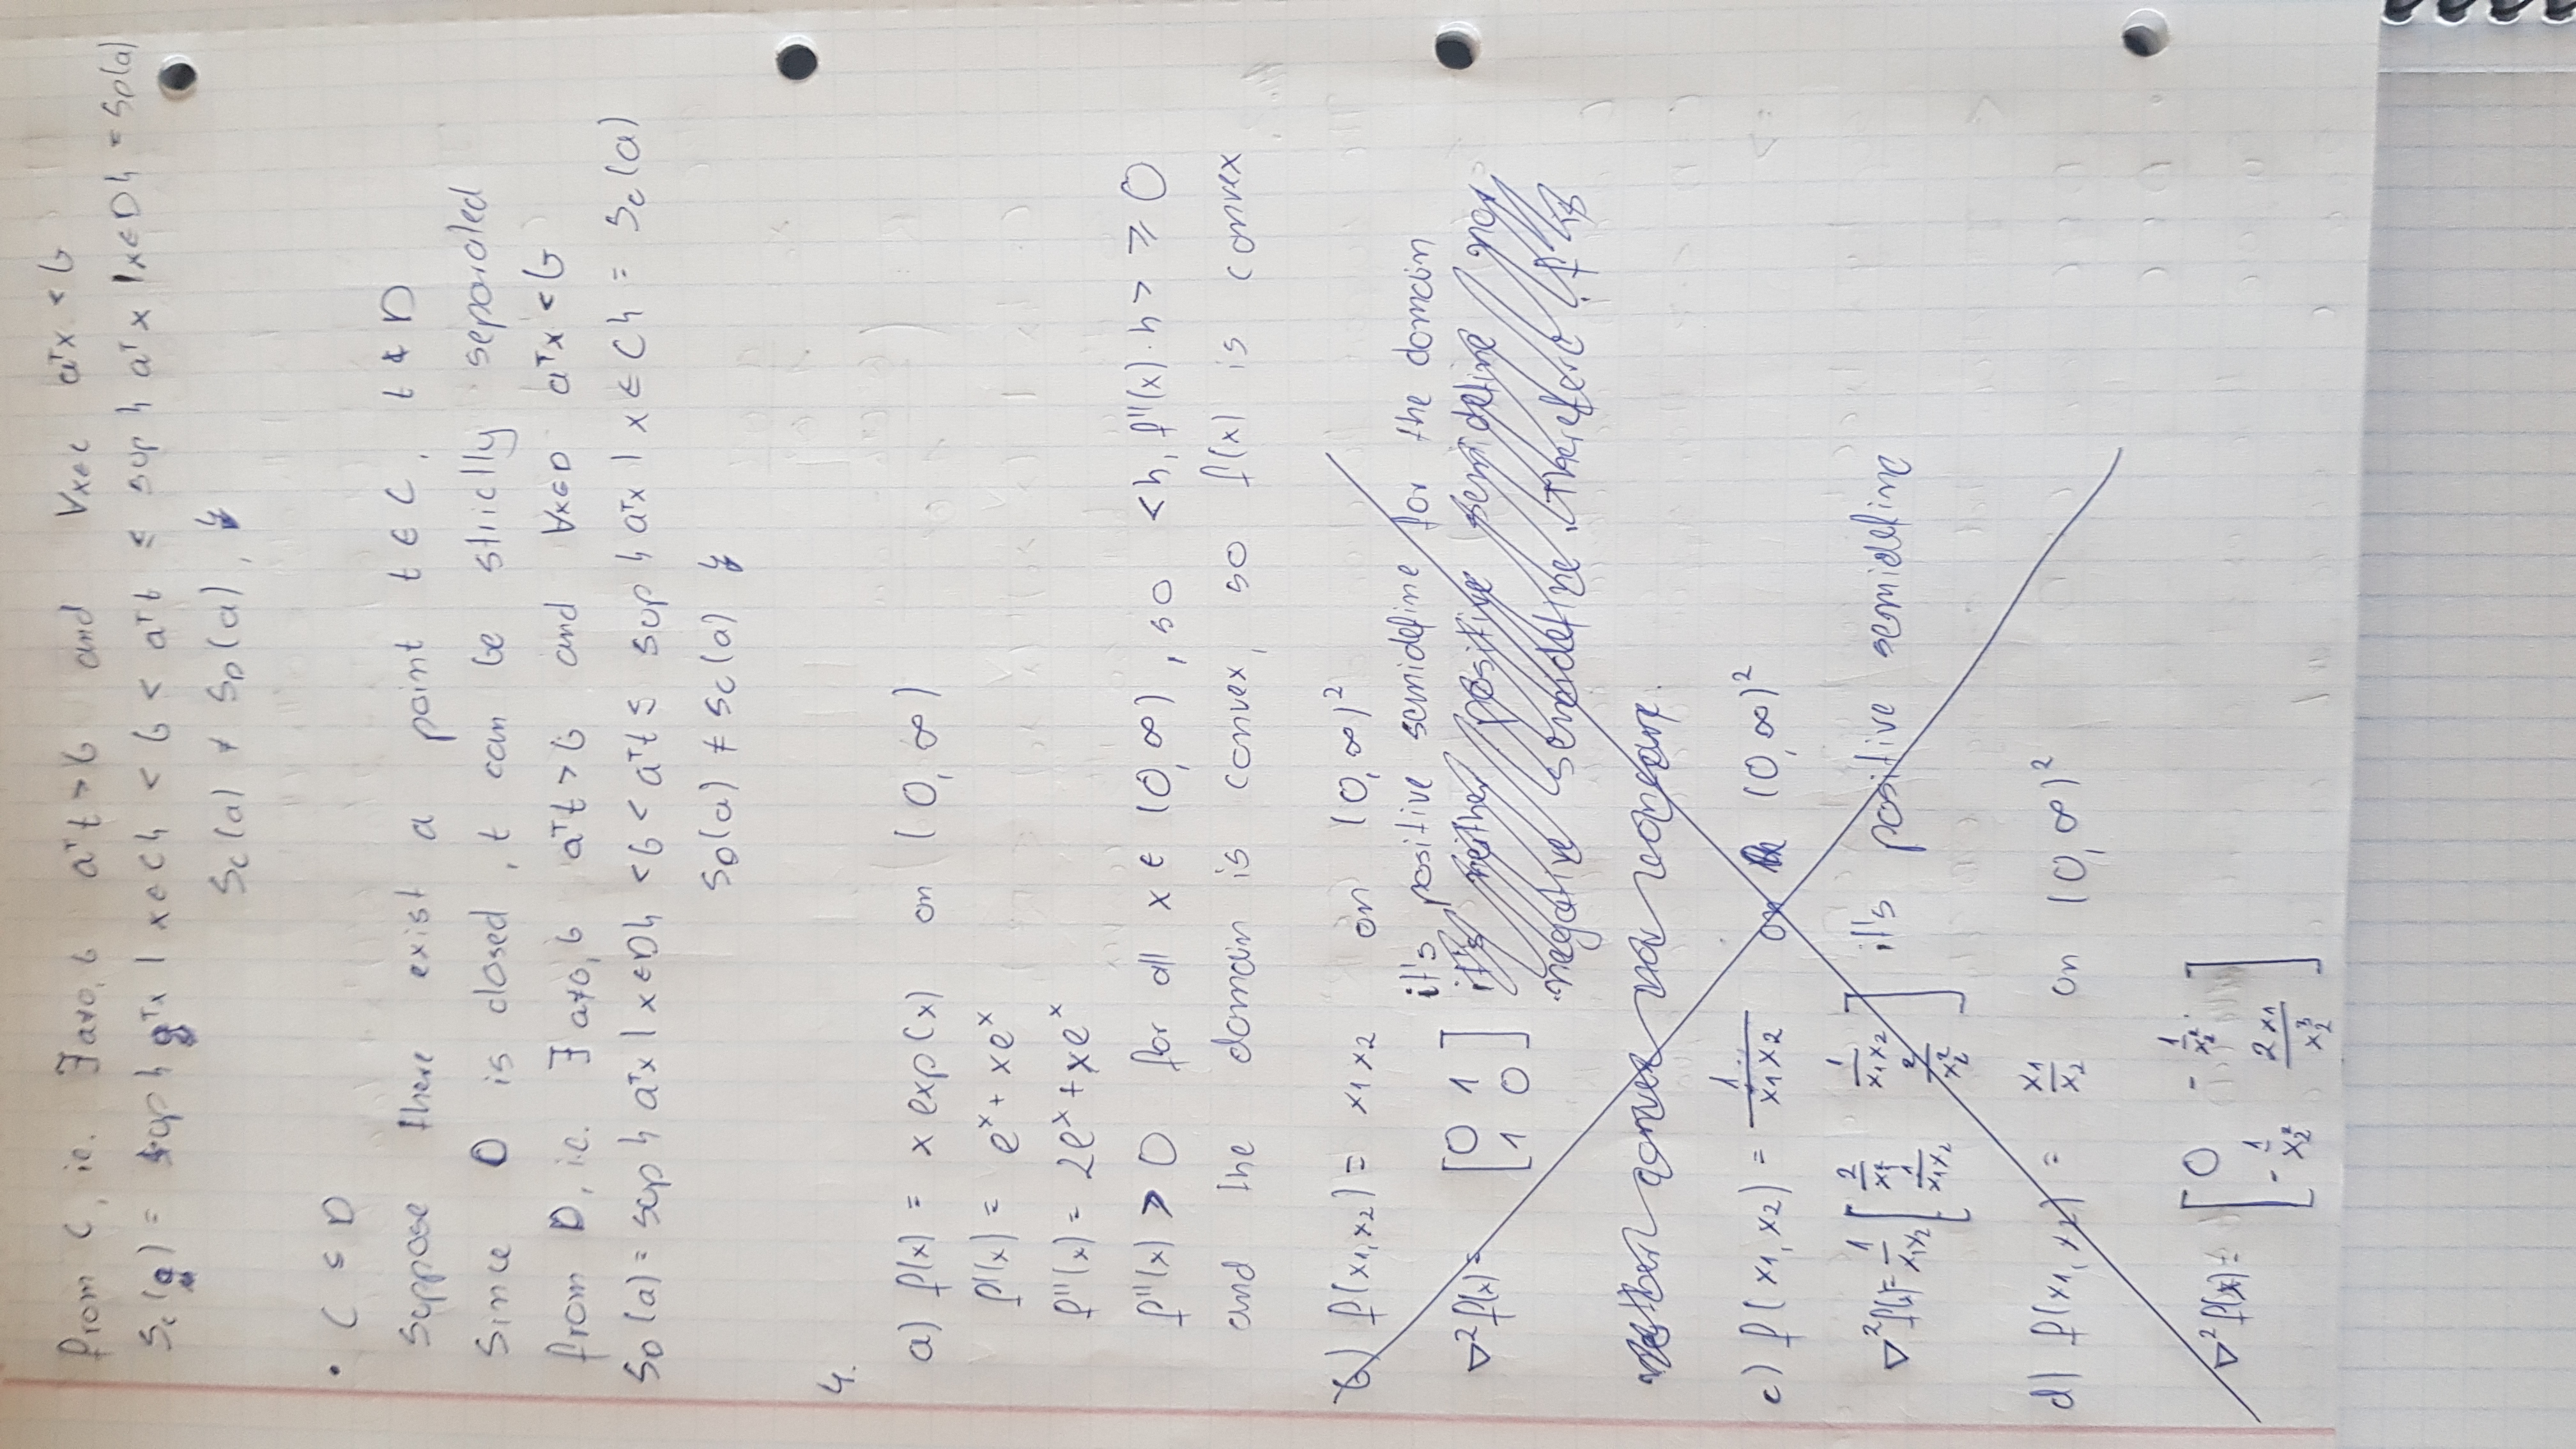 from C, ie. ∃ a≠0, b aᵀt > b and ∀x∈C aᵀx < b
S_C(a) = sup { aᵀx | x ∈ C } < b < aᵀt ≤ sup { aᵀx | x ∈ D } = S_D(a)
S_C(a) ≠ S_D(a), ↯
• C ⊆ D
Suppose there exist a point t ∈ C, t ∉ D
Since D is closed, t can be strictly separated
from D, i.e. ∃ a≠0, b aᵀt > b and ∀x∈D aᵀx < b
S_D(a) = sup { aᵀx | x ∈ D } < b < aᵀt ≤ sup { aᵀx | x ∈ C } = S_C(a)
S_D(a) ≠ S_C(a) ↯
4.
a) f(x) = x exp(x) on (0, ∞)
f'(x) = eˣ + xeˣ
f''(x) = 2eˣ + xeˣ
f''(x) > 0 for all x ∈ (0, ∞), so <h, f''(x)·h> ≥ 0
and the domain is convex, so f(x) is convex
b) f(x₁, x₂) = x₁x₂ on (0, ∞)²
it's positive semidefine for the domain
∇²f(x) = [0 1; 1 0] it's neither positive semidefine nor
negative semidefine. Therefore, f is
neither convex nor concave.
c) f(x₁, x₂) = 1/(x₁x₂) on (0, ∞)²
∇²f(x) = 1/(x₁x₂) [2/x₁² 1/(x₁x₂); 1/(x₁x₂) 2/x₂²] it's positive semidefine
d) f(x₁, x₂) = x₁/x₂ on (0, ∞)²
∇²f(x) = [0 -1/x₂²; -1/x₂² 2x₁/x₂³]